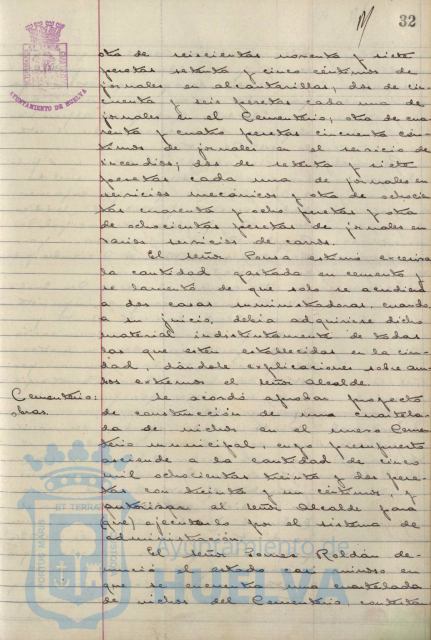 32
AYUNTAMIENTO DE HUELVA
otra de seiscientas noventa y siete
pesetas setenta y cinco céntimos de
jornales en alcantarillas, dos de cin-
cuenta y seis pesetas cada una de
jornales en el Cementerio, otra de cua-
renta y cuatro pesetas cincuenta cén-
timos de jornales en el servicio de
incendios; dos de setenta y siete
pesetas cada una de jornales en
servicios mecánicos y otra de ochocien-
tas cuarenta y ocho pesetas y otra
de ochocientas pesetas de jornales en
varios servicios de carros.
El señor Ponsa estimó excesiva
la cantidad gastada en cemento y
se lamentó de que solo se acudiera
a dos casas suministradoras, cuando
a su juicio, debía adquirirse dicho
material indistintamente de todas
las que estén establecidas en la ciu-
dad, dándole explicaciones sobre am-
bos extremos el señor Alcalde.
Cementerio:
obras.
Se acordó aprobar proyecto
de construcción de una cuartela-
da de nichos en el nuevo Cemen-
terio municipal, cuyo presupuesto
asciende a la cantidad de cinco
mil ochocientas treinta y dos pese-
tas con treinta y un céntimos, y
autorizar al señor Alcalde para
(que) ejecutarlo por el sistema de
administración.
El señor Roldán de-
nunció el estado casi ruinoso en
que se encuentra una cuartelada
de nichos del Cementerio, contestan
ET TERRA
PORTUS MARIS
Ayuntamiento de
HUELVA